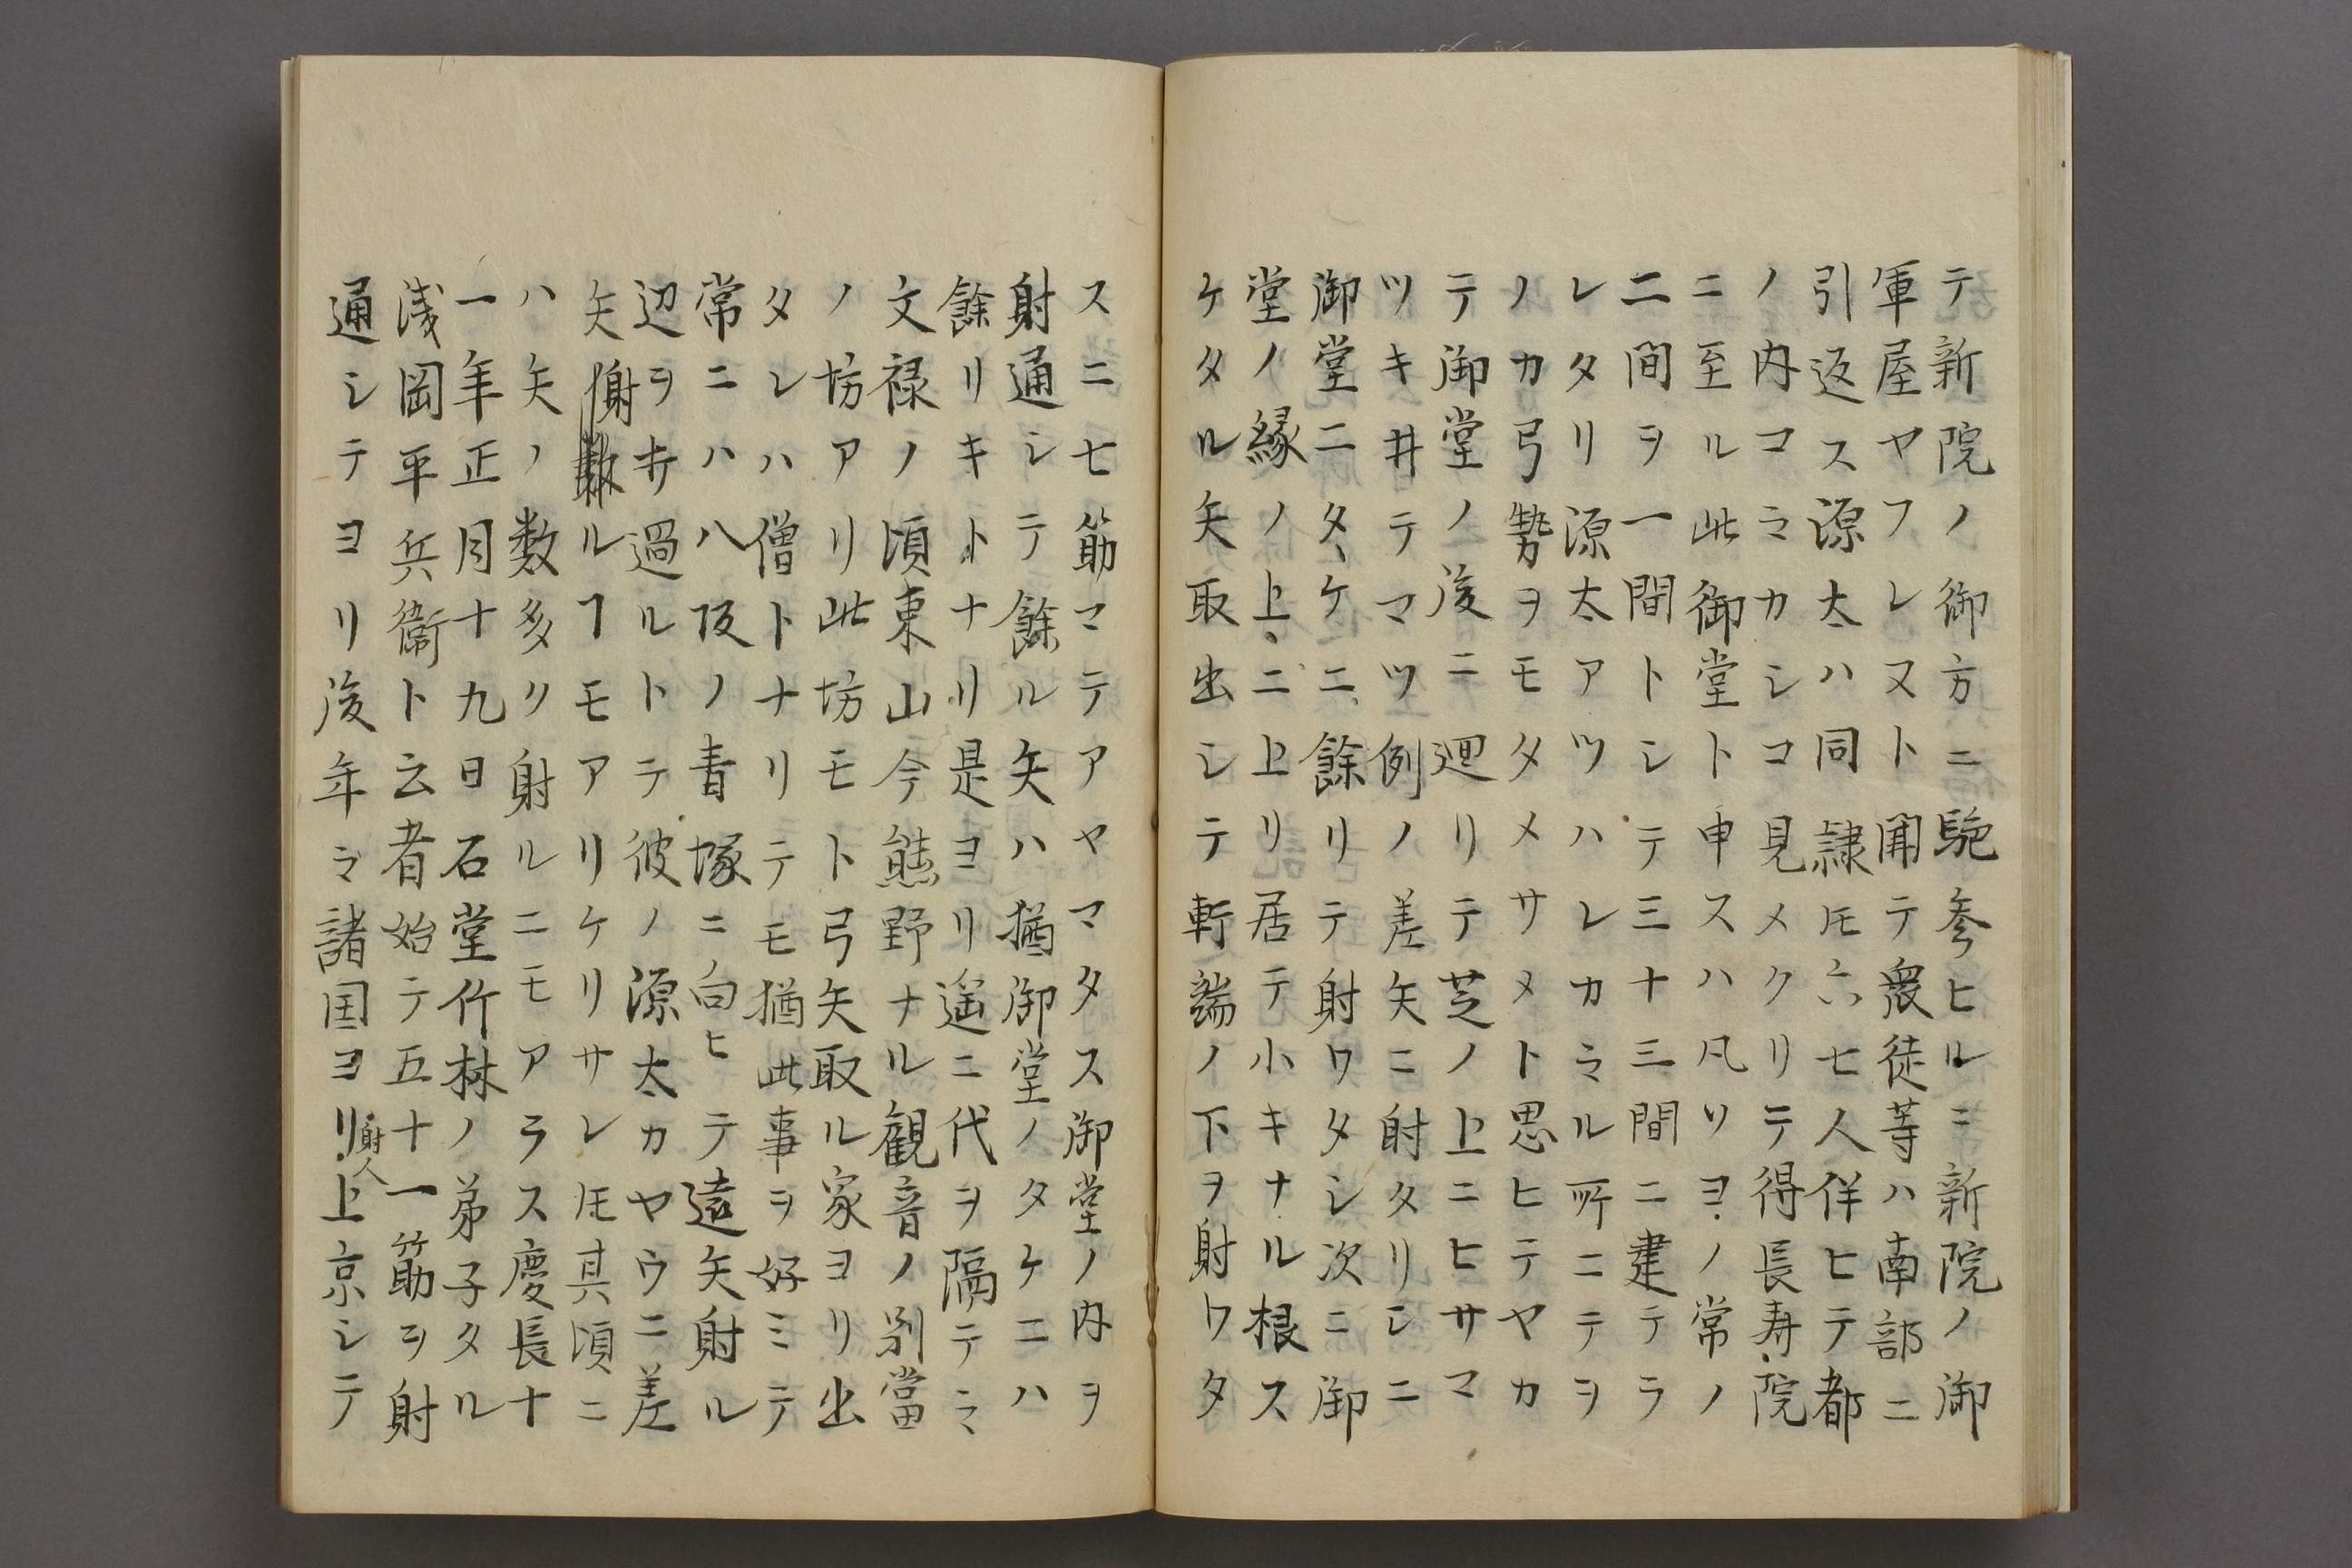 テ新院ノ御方ニ馳参ヒルニ新院ノ御
軍屋ヤフレヌト聞テ衆徒等ハ南部ニ
引返ス源太ハ同隷𪜈六七人伴ヒテ都
ノ内コヽカシコ見メクリテ得長寿院
ニ至ル此御堂ト申スハ凡ソヨノ常ノ
二間ヲ一間トシテ三十三間ニ建テラ
レタリ源太アツハレカヽル所ニテヲ
ノカ弓勢ヲモタメサメト思ヒテヤカ
テ御堂ノ後ニ廻リテ芝ノ上ニヒサマ
ツキ井テマツ例ノ差矢ニ射タリシニ
御堂ニタヽケニヽ餘リテ射ワタシ次ニ御
堂ノ縁ノ上ニ上リ居テ小キナル根ス
ケタル矢取出シテ軒端ノ下ヲ射ワタ
スニ七筋マテアヤマタス御堂ノ内ヲ
射通シテ餘ル矢ハ猶御堂ノタケニハ
餘リキトナリ是ヨリ遥ニ代ヲ隔テヽ
文禄ノ頃東山今熊野ナル観音ノ別當
ノ坊アリ此坊モト弓矢取ル家ヨリ出
タレハ僧トナリテモ猶此事ヲ好ミテ
常ニハ八坂ノ青塚ニ向ヒテ遠矢射ル
辺ヲ𫝼過ルトテ彼ノ源太カヤウニ差
矢射ルヿモアリケリサレ𪜈其頃ニ
ハ矢ノ数多ク射ルニモアラス慶長十
一年正月十九日石堂竹林ノ弟子タル
浅岡平兵衛ト云者始テ五十一筋ヲ射
通シテヨリ後年ヽ諸国ヨリ射人上京シテ